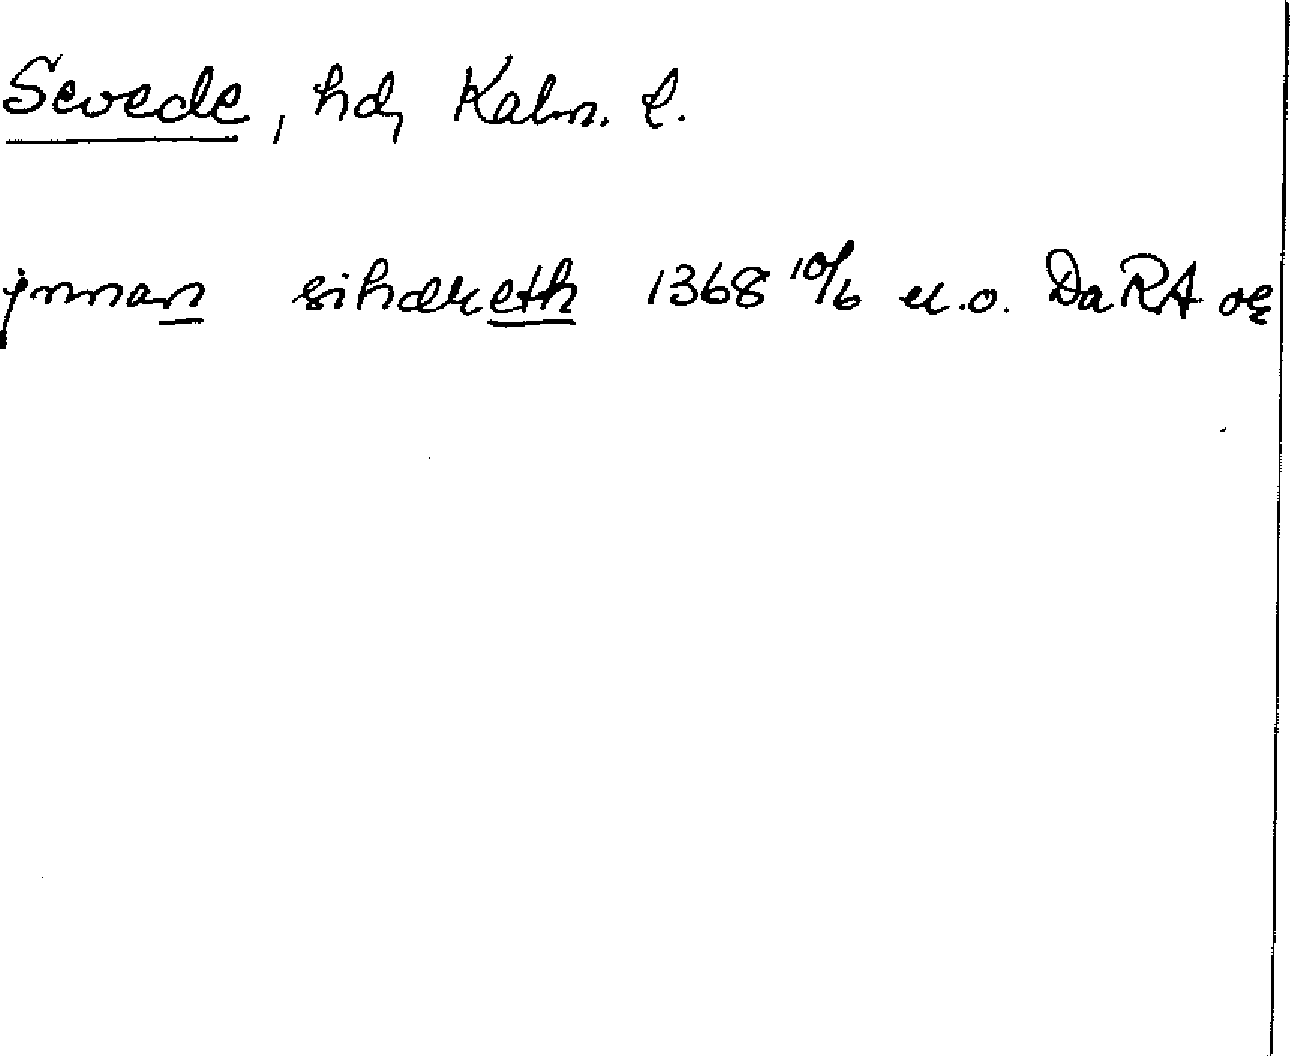 Sevede, hd, Kalm. l.
jnnan sihdræth 1368 10/6 u.o. DaRA